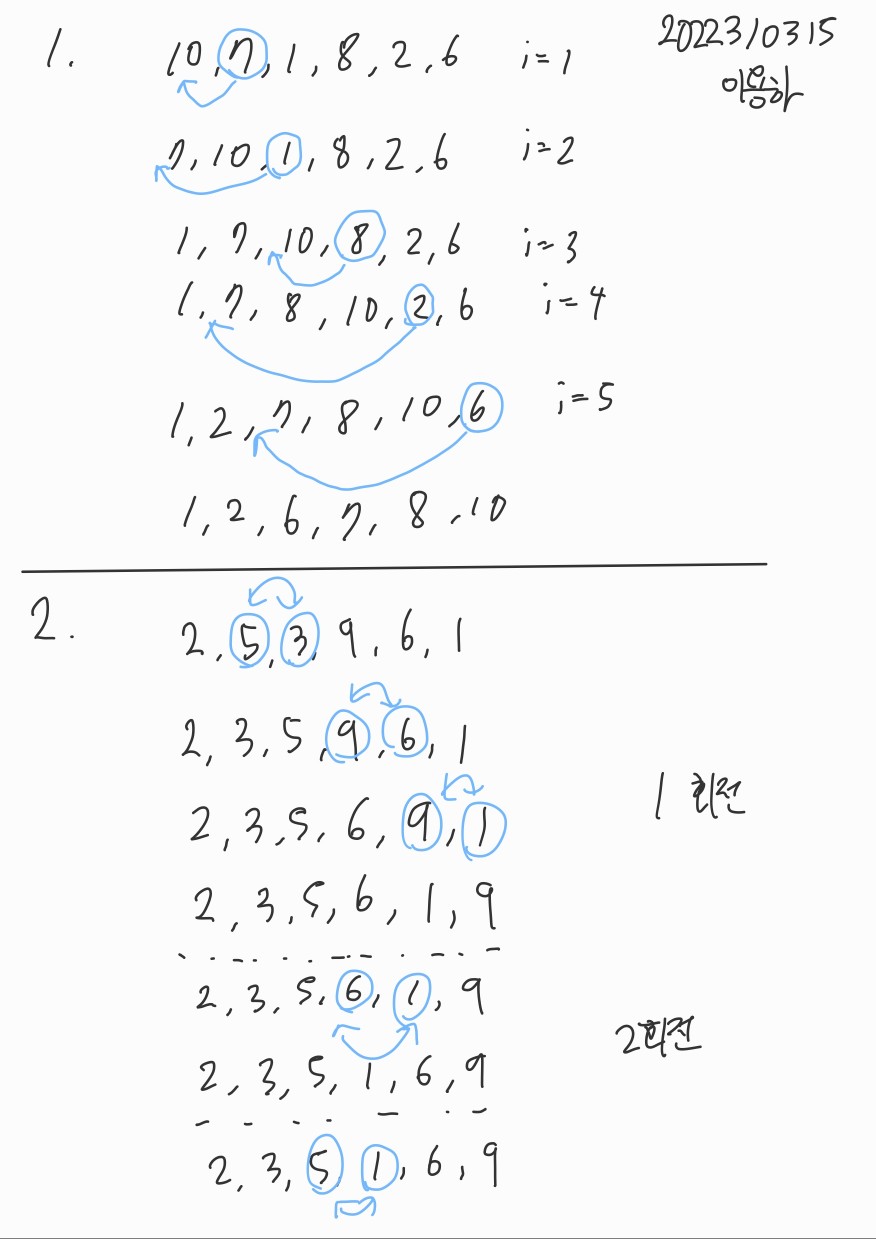 2022310315
1.
10, 7, 1, 8, 2, 6 i=1
7, 10, 1, 8, 2, 6 i=2
1, 7, 10, 8, 2, 6 i=3
1, 7, 8, 10, 2, 6 i=4
1, 2, 7, 8, 10, 6 i=5
1, 2, 6, 7, 8, 10
2.
2, 5, 3, 9, 6, 1
2, 3, 5, 9, 6, 1
1 회전
2, 3, 5, 6, 9, 1
2, 3, 5, 6, 1, 9
2, 3, 5, 6, 1, 9
2회전
2, 3, 5, 1, 6, 9
2, 3, 5 1, 6, 9